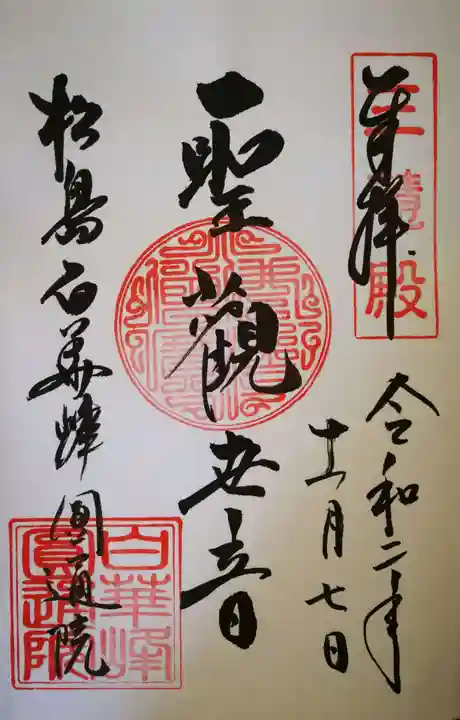 奉拝
三慧殿
令和二年
十一月七日
聖觀世音
松島白華峰圓通院
白華峰
圓通院